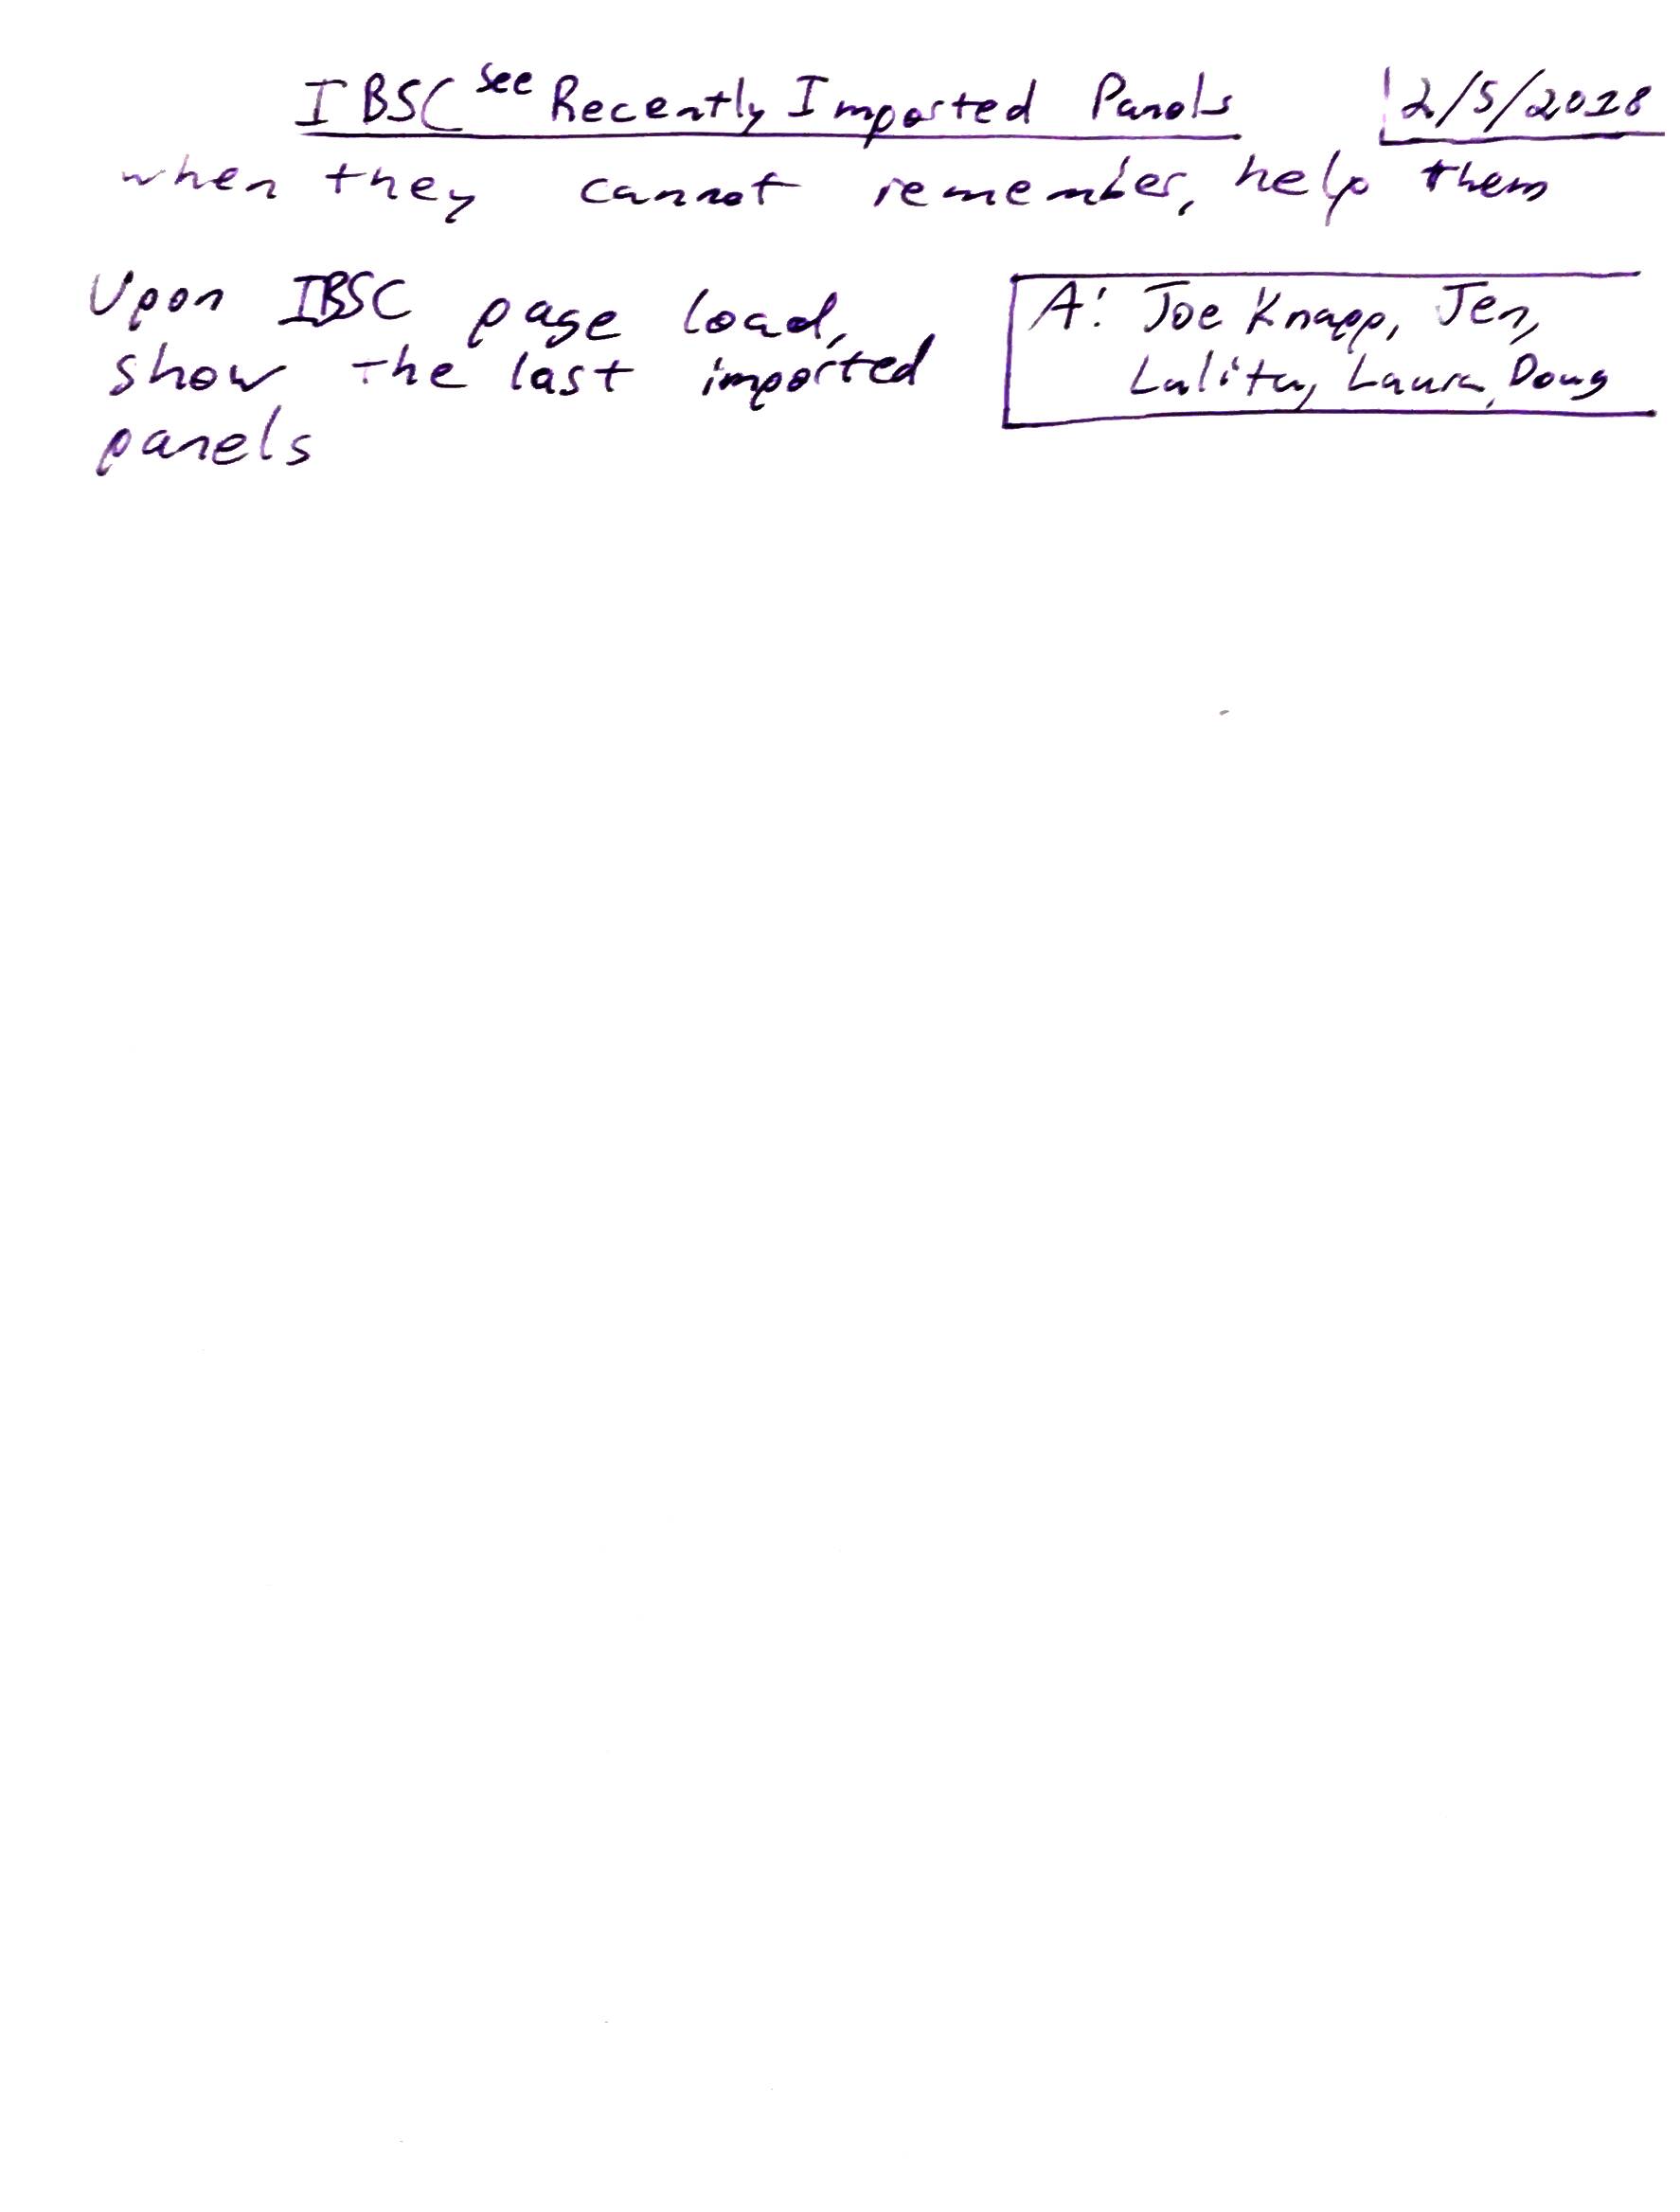 IBSC see Recently Imported Panels 2/5/2018
when they cannot remember, help them
Upon IBSC page load,
show the last imported
panels
A: Joe Knapp, Jen,
Lalita, Laura, Doug